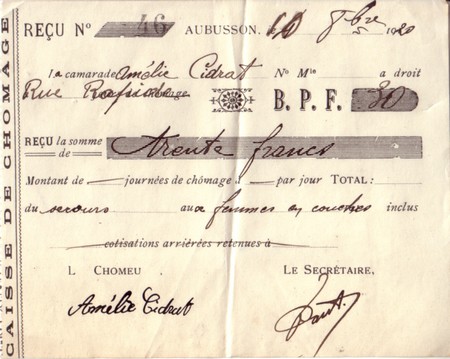 CAISSE DE CHOMAGE
REÇU N° 46 AUBUSSON, 10 8bre 1920
La camarade Amélie Cidrat N° Mle a droit
Rue B. P. F. 30
REÇU la somme de Trente francs
Montant de — journées de chômage à — par jour TOTAL:
du secours aux femmes en couches inclus
cotisations arriérées retenues à
L CHOMEU LE SECRÉTAIRE,
Amélie Cidrat